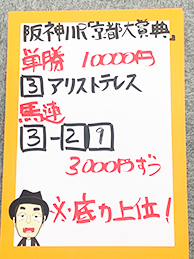 阪神11R京都大賞典
単勝 10000円
3 アリストテレス
馬連
3-29
3000円ずつ
※底力上位！